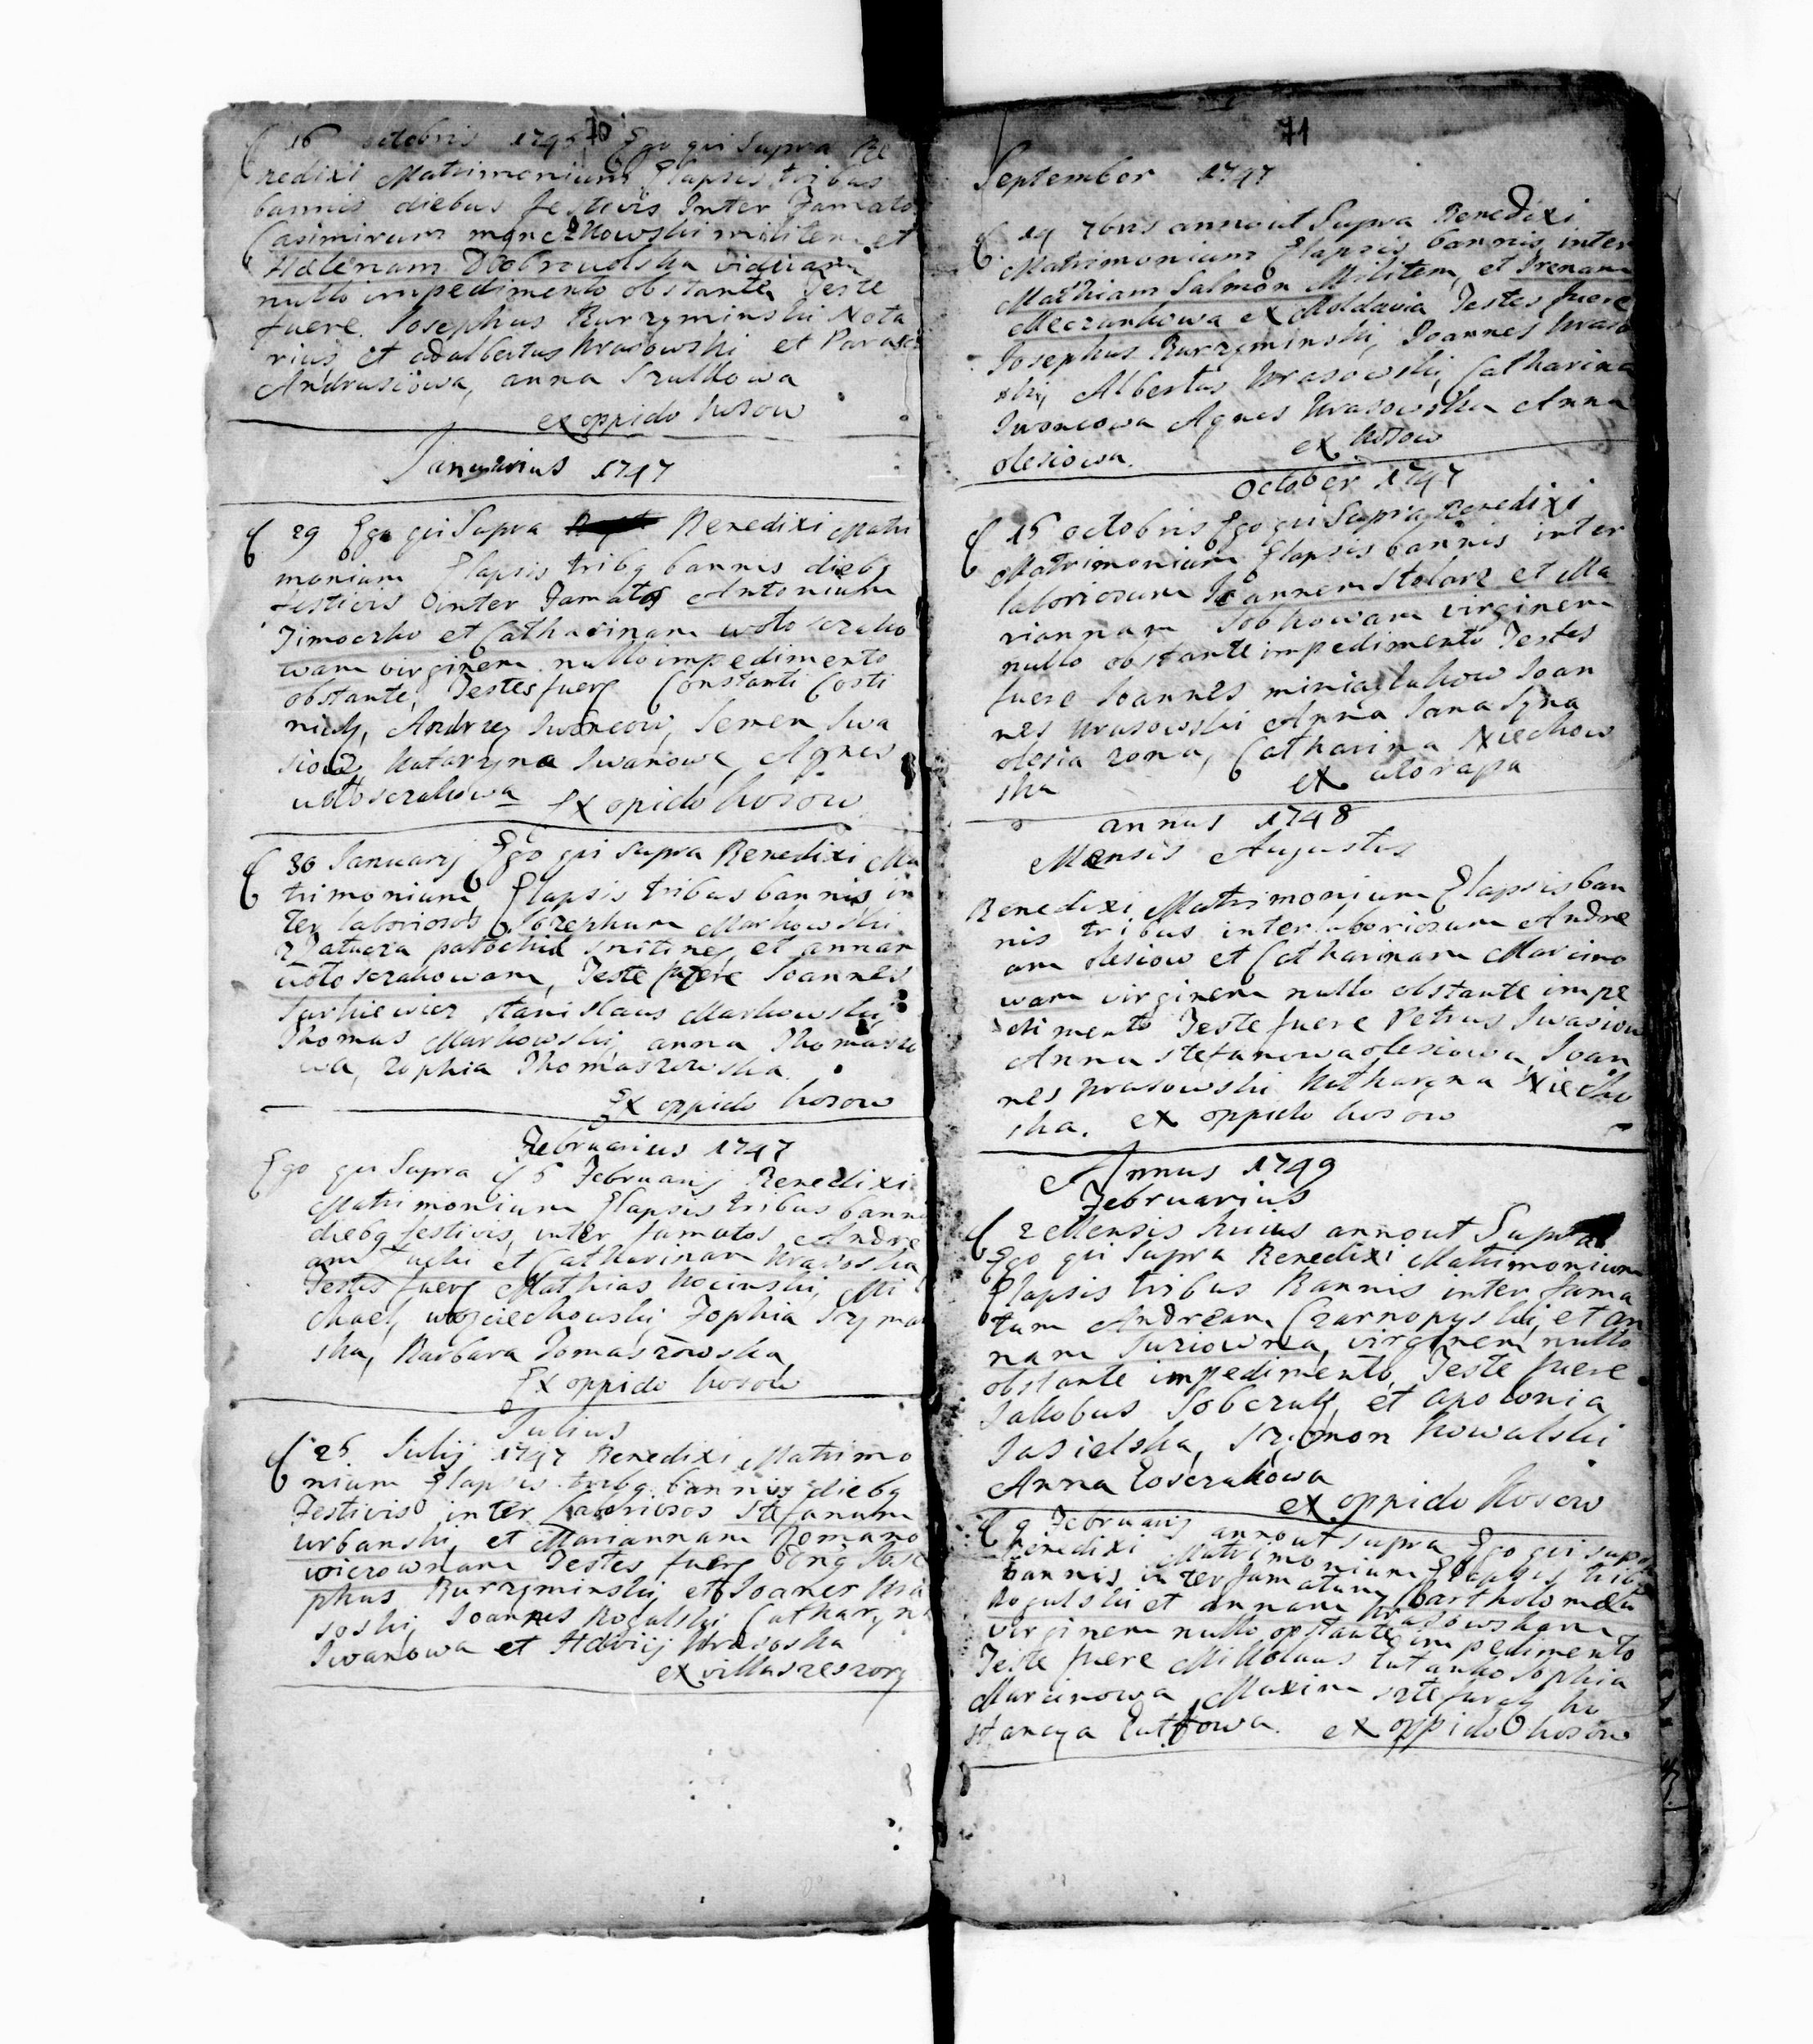 70
16 octobris 1746 Ego qui Supra Be
nedixi Matrimonium Elapsis tribus
bannis diebus festivis Inter Famatos
Casimirum Militem et
Halenam Dobrowolska viduam
nullo impedimento obstante, Teste
fuere Josephus Burzyminski Nota
rius, et adalbertus Krasowski et
Andrusiowa, anna Szulkowa
ex oppido kosow
Januarius 1747
29 Ego qui Supra Benedixi Matri
monium Elapsis tribq bannis diebq
festivis inter Famatos Antonium
Timoczko et Catharinam woloszczako
wam virginem nullo impedimento
obstante, Testes fuere Constanti Costi
nich, Andrzey Iwancow, Semen Iwa
siow, Katarzyna Iwanowa, Agnes
woloszczakowa Ex opido kosow
30 January Ego qui Supra Benedixi Ma
trimonium, Elapsis tribus bannis in
ter laboriosos Jozephum Markowski
et annam
woloszczakowam, Teste fuere Joannes
Jurkiewicz Stanislaus Markowski,
Thomas Markowski, anna Thomaszo
wa, zophia Thomaszowska.
Ex oppido kosow
Februarius 1747
Ego qui Supra 5 February Benedixi
Matrimonium Elapsis tribus bannis
diebq festivis, inter famatos Andre
am et Catharinam Krasoska
Testes fuere Mathias kocinski, Mi
chael woyciechowski, Zophia Szyman
ska, Barbara Tomaszowska,
Ex oppido kosow
Julius
25 July 1747 Benedixi Matrimo
nium Elapsis tribq bannis diebq
Festivis inter Laboriosos Stefanum
urbanski, et Mariannam Romano
wiczownam Testes fuere Jose
phus Burzyminski, et Joanes Kra
soski, Joannes Rogalski, Catharyna
Iwanowa et Hedvig Krasoska
ex villa szeszory
71
September 1747
19 7bris anno ut Supra Benedixi
Matrimonium Elapsis bannis inter
Mathiam Salmon Militem, et Irenam
Meczunkowa ex Moldavia Testes fuere
Josephus Burzyminski, Joannes Kraso
ski, Albertus Krasowski, Catharina
Iwoncowa Agnes Krasowska Anna
olesiowa. ex kosow
October 1747
15 octobris Ego qui Supra Benedixi
Matrimonium Elapsis bannis inter
laboriosum Joannem Stolarz et Ma
riannam Sobkowam virginem
nullo obstante impedimento Testes
fuere Joannes Joan
nes Krasowski Anna Jana Syna
olesia zona, Catharina Niechow
ska ex utorapa
annus 1748
Mensis Augustus
Benedixi Matrimonium Elapsis ban
nis tribus inter laboriosum Andre
am olesiow et Catharinam Marcino
wam virginem nullo obstante impe
dimento Teste fuere Petrus Iwasiow
Anna stefanowa olesiowa, Joan
nes Krasowski Katharyna Niecho
ska. ex oppido kosow
Annus 1749
Februarius
2 Mensis huius anno ut Supra
Ego qui Supra Benedixi Matrimonium
Elapsis tribus Bannis inter fama
tum Andream Czarnopyski, et an
nam Juziowna, virginem nullo
obstante impedimento, Teste fuere
Jakobus Sobczuk, et apolonia
Jasielska, Szymon Kowalski
Anna Loszakowa
ex oppido Kosow
9 February anno ut supra Ego qui supra
Benedixi Matrimonium Elapsis tribq
bannis inter famatum Bartholomeu
Rogulski et annam Krasowskam
virginem nullo opstante impedimento
Teste fuere Mikolaus tutanko Sophia
Marcinowa, Maxim ko
stancya Lutkowa. ex oppido kosow